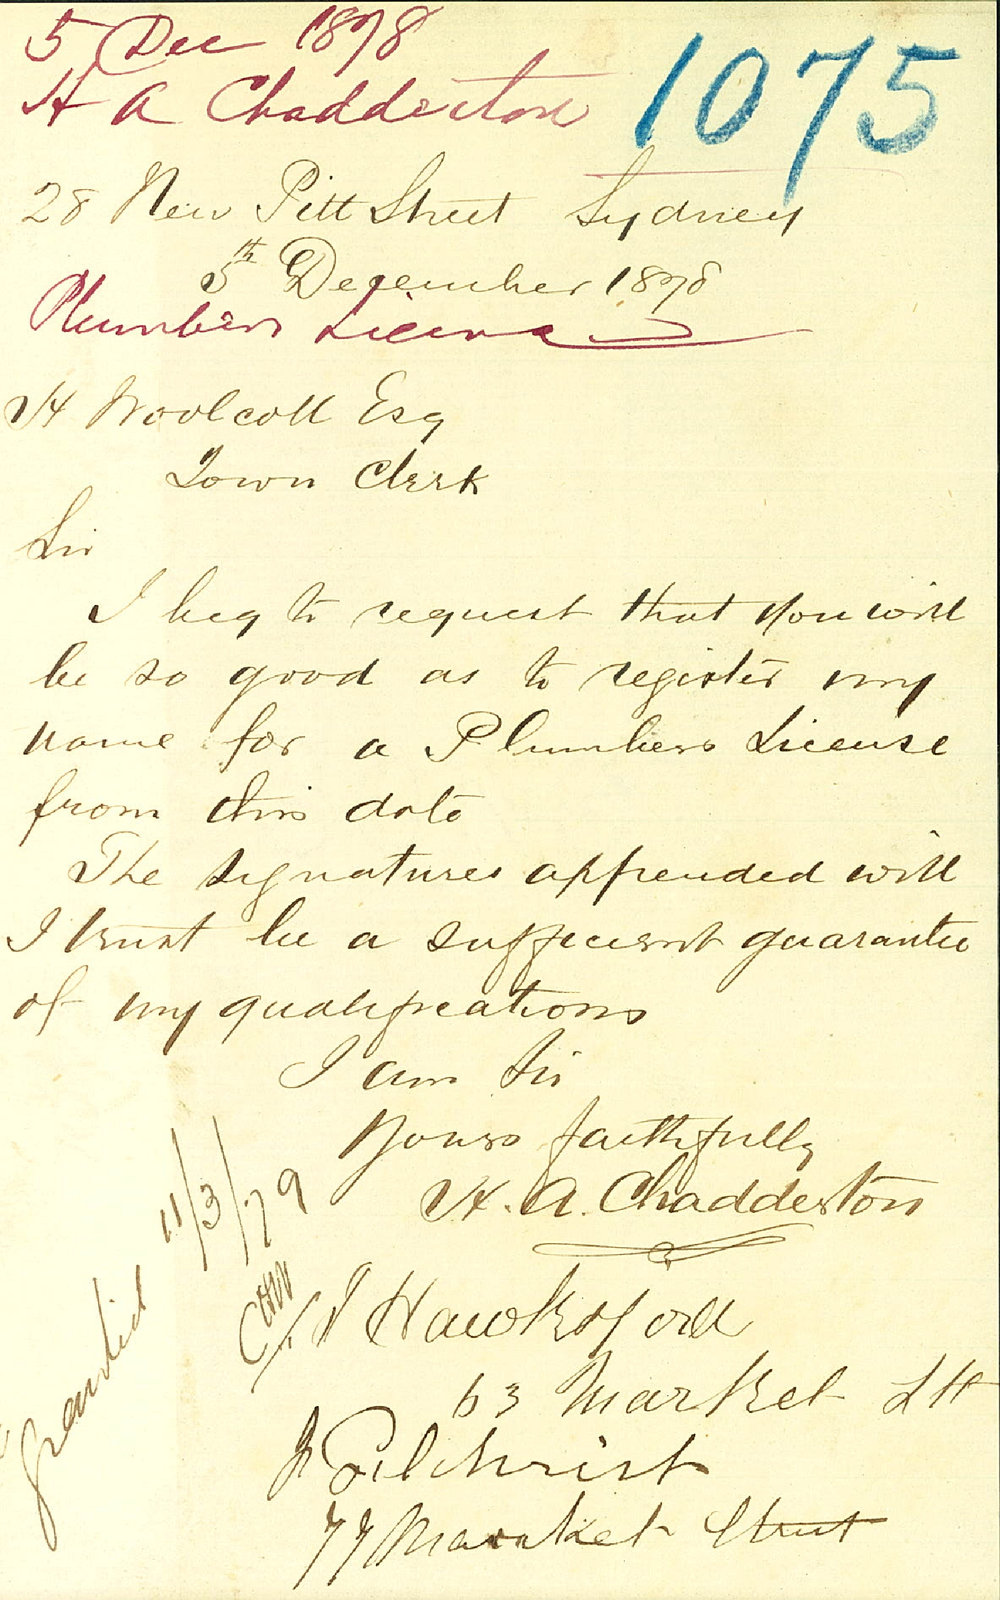 5 Dec 1878
H A Chadderton
1075
28 New Pitt Street Sydney
5th December 1878
Plumbers License
H Woolcott Esq
Town Clerk
Sir
I beg to request that you will
be so good as to register my
name for a Plumbers License
from this date
The signatures appended will
I trust be a sufficient guarantee
of my qualifications
I am Sir
Yours faithfully
H. A. Chadderton
J Hawksford
63 Market St
J Gilchrist
77 Market Street
11/3/79